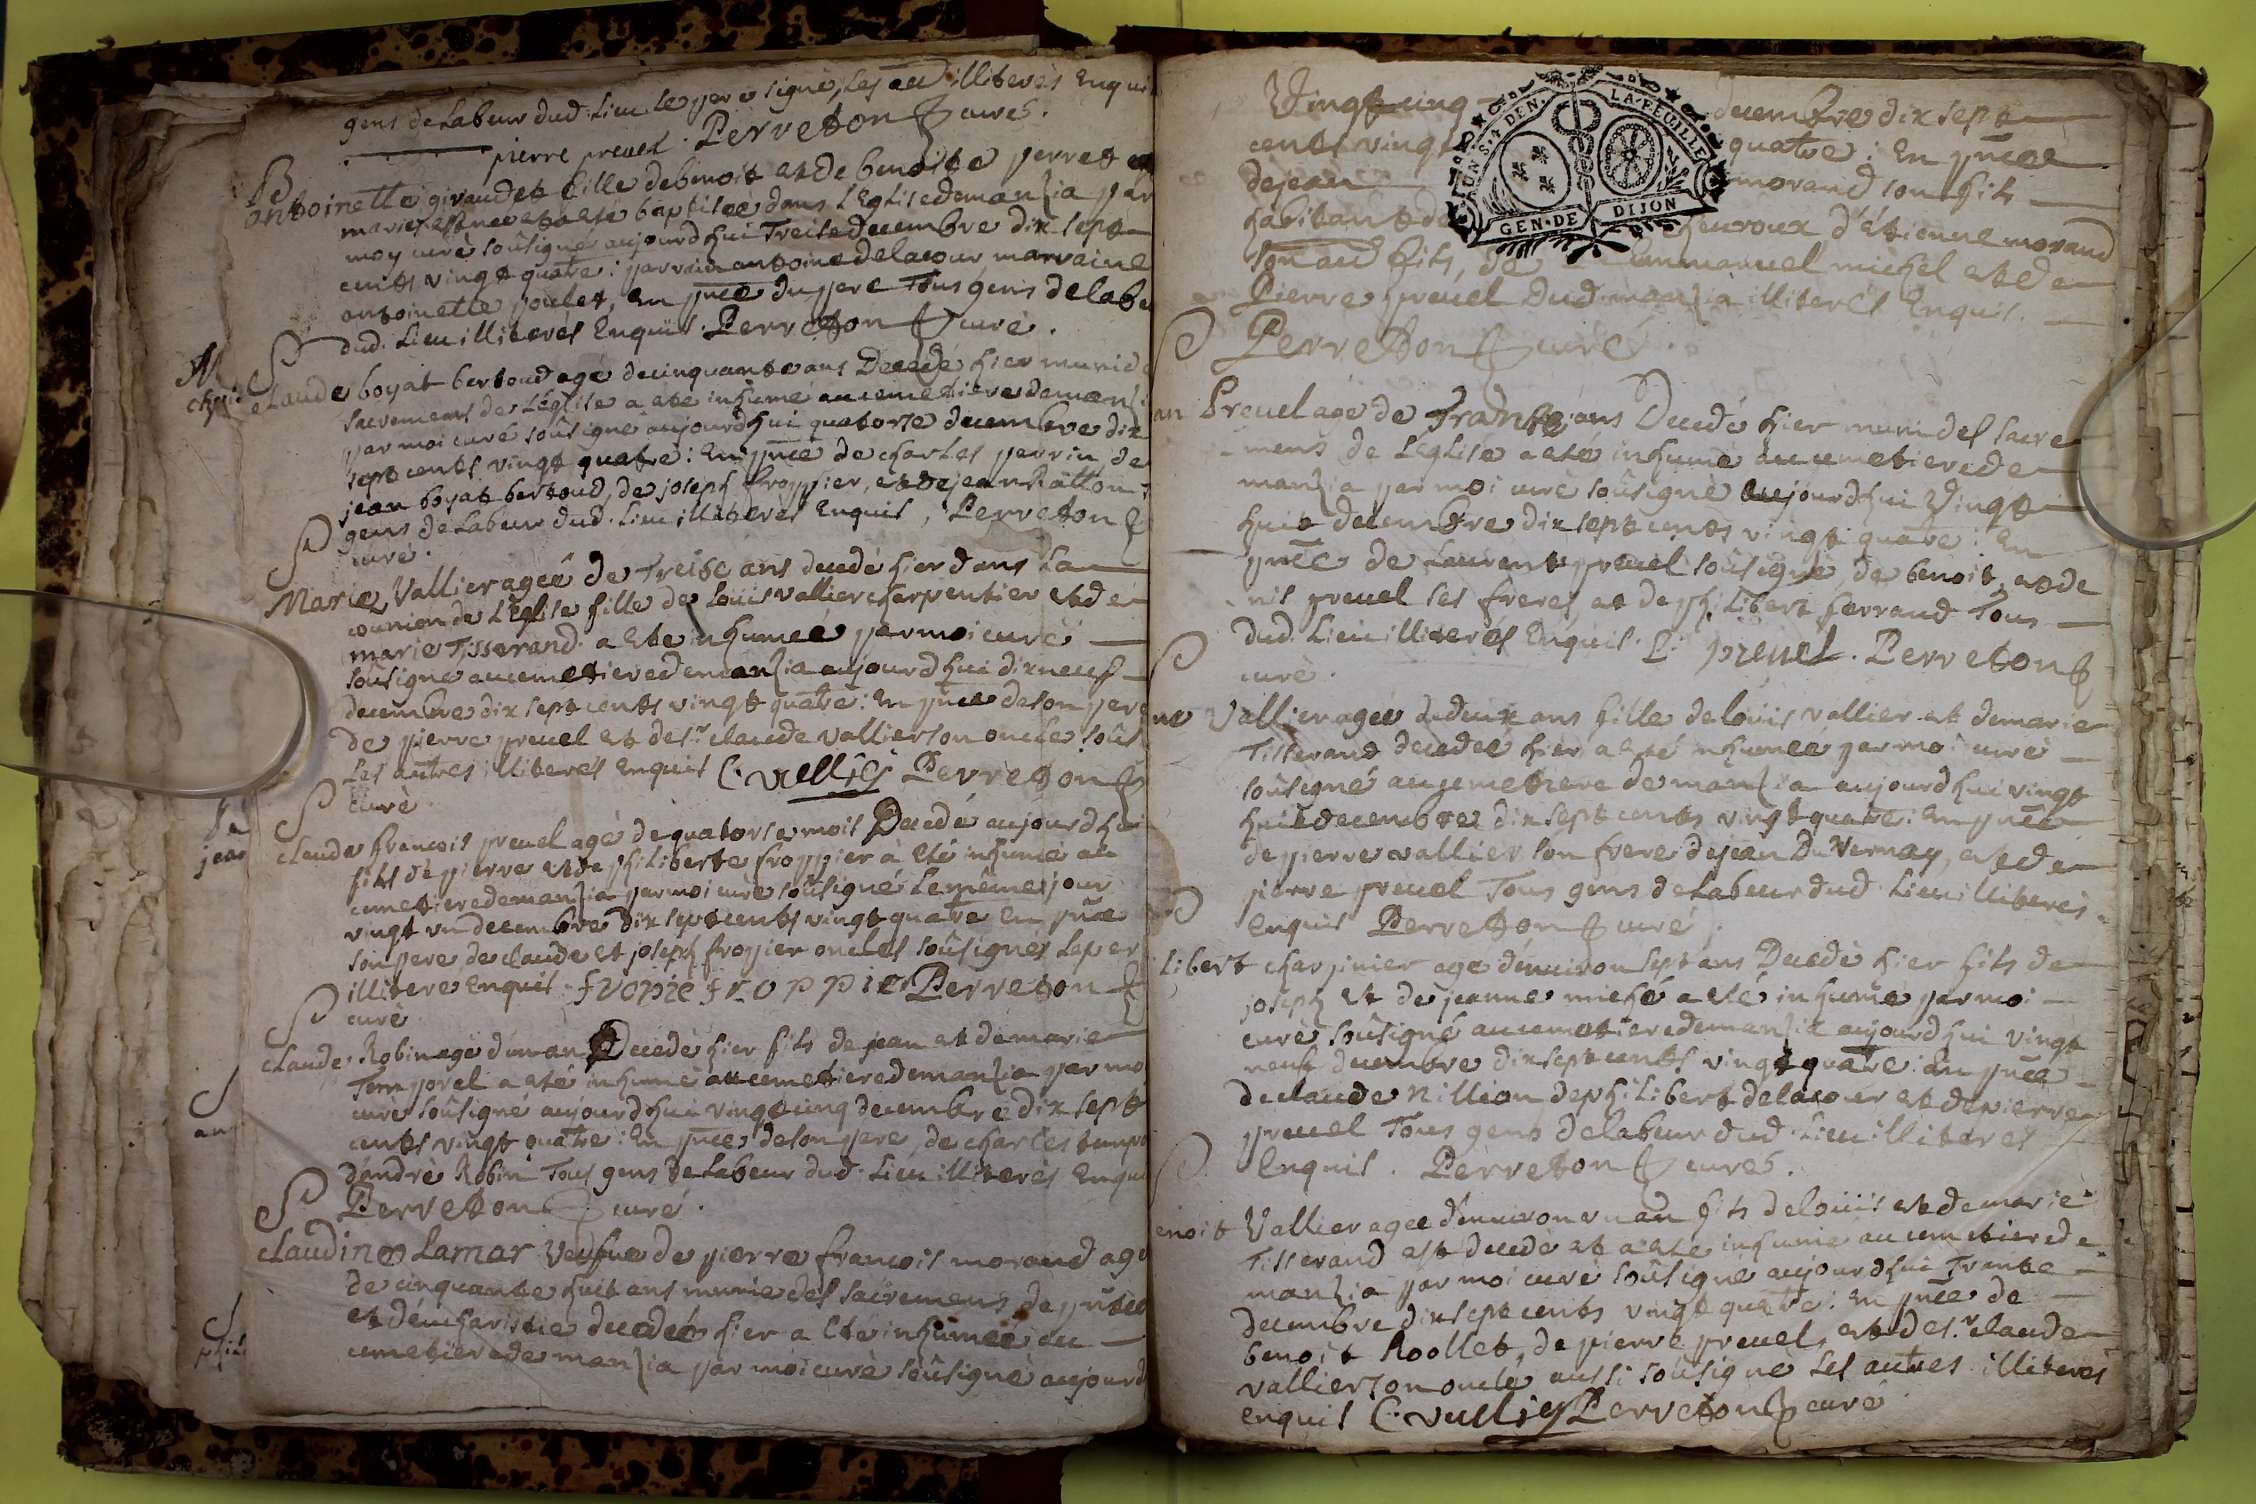 gens de labeur dud. lieu le pere signé, les au illiterés enquis
pierre preuel . Perreton curé.
B
antoinette giraudet fille de benoit et de benoite perret
mariés est née et a eté baptisée dans l'Eglise de manzia par
moy curé soûsigné aujourdhui Treize decembre dix sept
cents vingt quatre : parrain antoine delacour marraine
antoinette poulet, en pnce du pere Tous gens de labe
dud. lieu illiterés Enquis. Perreton curé.
S
claude boyat bertoud agé de cinquante ans Decedé hier muni de
sacremens de l'église a eté inhumé au cemetiere de manzi
par moi curé soûsigné aujourdhui quatorze decembre dix
sept cents vingt quatre : En pnce de charles perrin de
jean boyat bertoud, de joseph froppier, et de jean Ratton
gens de labeur dud. lieu illiterés Enquis, Perreton
curé.
S
Marie Vallier ageé de Treize ans decedé hier dans la
counion de l'Eglise fille de Loüis vallier charpentier et de
marie Tisserand a eté inhumeé par moi curé
soûsigné au cemetiere de manzia aujourdhui dixneuf
decembre dix sept cents vingt quatre : En pnce de son pere
de pierre preuel et de sr. claude vallier son oncle soûs
Les autres illiterés Enquis C. vallier Perreton
curé
S
claude francois preuel agé de quatorse mois Decedé aujourdhui
fils de pierre et de philiberte froppier à eté inhumé au
cemetiere de manzia par moi curé soûsigné Le même jour
vingt un decembre dix sept cents vingt quatre En pnce
son pere, de claude et joseph froppier oncles soûsignés Le per
illitere Enquis. fropie froppie Perreton
curé
S
claude Robin agé d'un an Decedé hier fils de jean et de marie
Temporel a eté inhumé au cemetiere de manzia par mo
curé soûsigné aujourdhui vingt cinq decembre dix sept
cents vingt quatre : En pnce de son pere, de charles tempo
d'andré Robin Tous gens de Labeur dud. Lieu illiterés Enqui
Perreton curé.
S
claudine Lamar Veufue de pierre francois morand ageé
de cinquante huit ans munie des sacremens de pnitce
et d'eucharistie decedeé hier a eté inhumeé au
cemetiere de manzia par moi curé soûsigné aujourd
Vingt cinq decembre dix sept
cents vingt quatre : En pnce
de jean morand son fils
habitant de cheuroux d'étienne morand
son au fils, de emmanuel michel et de
Pierre preuel Dud. manzia illiterés Enquis.
Perreton curé.
S
Preuel agé de Trante ans Decedé hier muni des sacre
mens de L'église a eté inhumé au cemetiere de
manzia par moi curé soûsigné aujourdhui Vingt
huit decembre dix sept cents vingt quatre : En
pnce de Laurent preuel soûsigné, de benoit, et de
nis preuel ses freres et de philibert ferrand Tous
dud. Lieu illiterés Enquis. L : preuel . Perreton
curé.
S
Vallier ageé de deux ans fille de loüis vallier et de marie
Tisserand decedeé hier a eté inhumeé par moi curé
soûsigné au cemetiere de manzia aujourdhui vingt
huit decembre dix sept cents vingt quatre : En pnce
de pierre vallier son frere de jean Du Vernay, et de
pierre preuel Tous gens de Labeur dud. Lieu illiterés
Enquis Perreton curé.
S
Libert charpinier agé d'enuiron sept ans Decedé hier fils de
joseph et de jeanne miché a eté inhumé par moi
curé soûsigné au cemetiere de manzia aujourdhui vingt
neuf decembre dix sept cents vingt quatre : En pnce
de claude Nillion de philibert delacour et de pierre
preuel Tous gens de labeur dud. Lieu illiteres
Enquis. Perreton curé.
S
enoit Vallier ageé d'enuiron un an fils de loüis et de marie
Tisserand est decedé et a eté inhumé au cemetiere de
manzia par moi curé soûsigné aujourdhui Trante
decembre dix sept cents vingt quatre : En pnce de
benoit Roollet, de pierre preuel, et de sr. claude
vallier son oncle aussi soûsigné Les autres illiteres
enquis C. vallier Perreton curé
GEN·DE DIJON
LA·FEUILLE